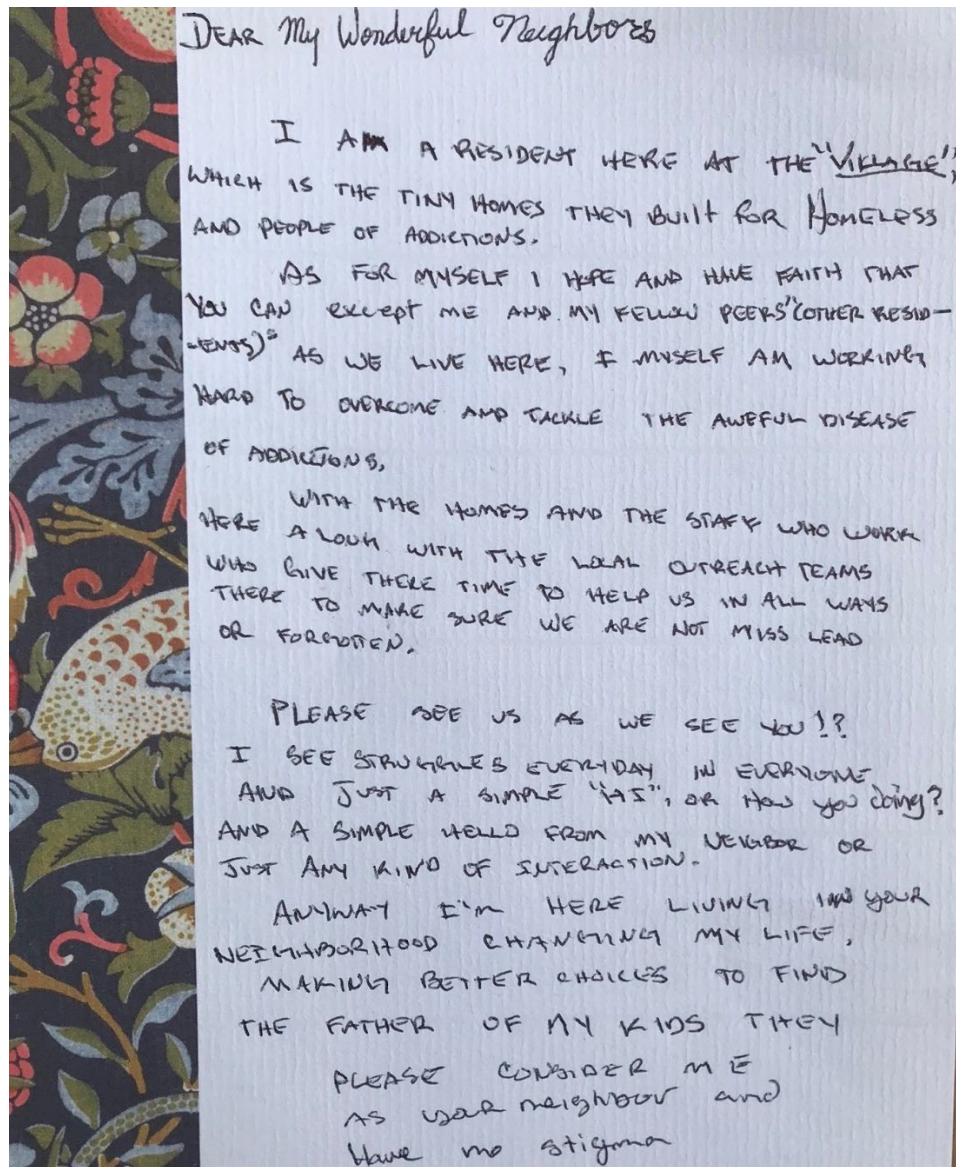 DEAR My Wonderful Neighbors
I AM A RESIDENT HERE AT THE "VILLAGE",
WHICH IS THE TINY HOMES THEY BUILT FOR HOMELESS
AND PEOPLE OF ADDICTIONS.
AS FOR MYSELF I HOPE AND HAVE FAITH THAT
YOU CAN except ME AND MY FELLOW PEERS "(OTHER RESID-
-ENTS)" AS WE LIVE HERE, I MYSELF AM WORKING
HARD TO OVERCOME AND TACKLE THE AWEFUL DISEASE
OF ADDICTIONS,
WITH THE HOMES AND THE STAFF WHO WORK
HERE A LONG WITH THE LOCAL OUTREACH TEAMS
WHO GIVE THERE TIME TO HELP US IN ALL WAYS
THERE TO MAKE SURE WE ARE NOT MISS LEAD
OR FORGOTTEN.
PLEASE SEE US AS WE SEE YOU!?
I SEE STRUGGLES EVERYDAY IN EVERYONE
AND JUST A SIMPLE "HI", OR HOW you doing?
AND A SIMPLE HELLO FROM MY NEIGBOR OR
JUST ANY KIND OF INTERACTION.
ANYWAY I'm HERE LIVING IN YOUR
NEIGHBORHOOD CHANGING MY LIFE,
MAKING BETTER CHOICES TO FIND
THE FATHER OF MY KIDS THEY
PLEASE CONSIDER ME
AS your neighbour and
Have no stigma